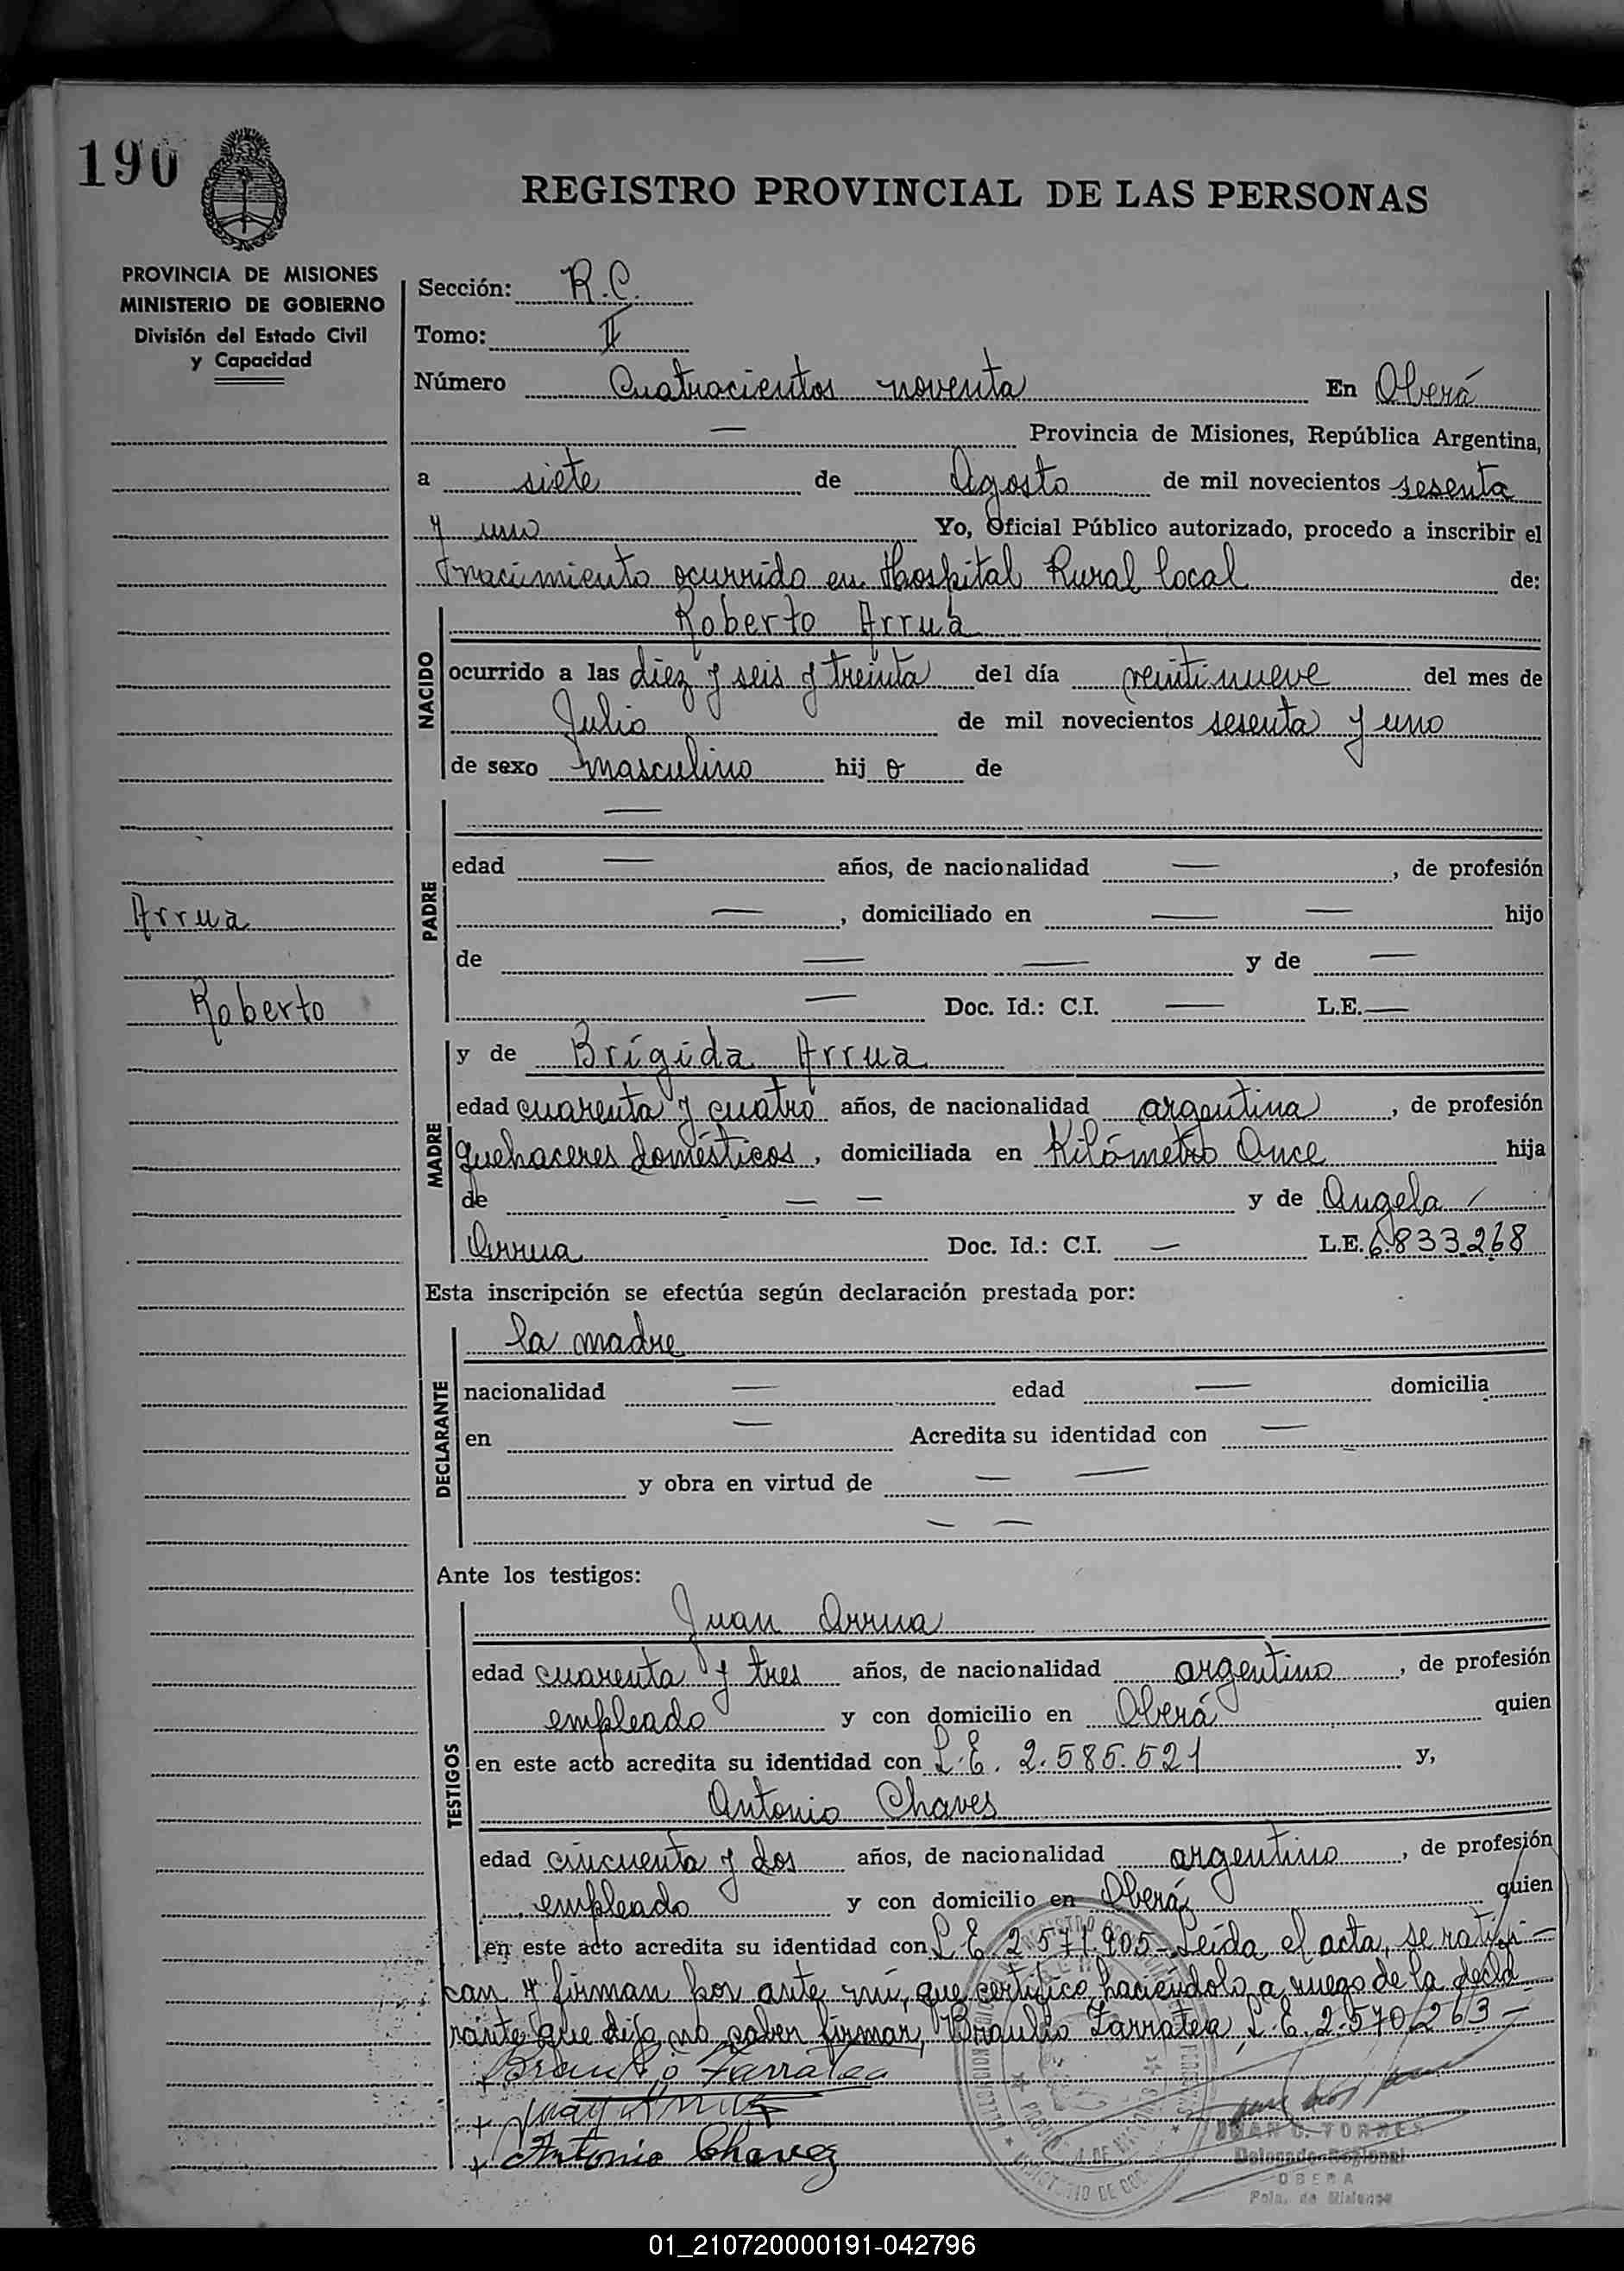 190
REGISTRO PROVINCIAL DE LAS PERSONAS
PROVINCIA DE MISIONES
MINISTERIO DE GOBIERNO
División del Estado Civil
y Capacidad
Sección: R.C.
Tomo: II
Número Cuatrocientos noventa En Oberá
— Provincia de Misiones, República Argentina,
a siete de Agosto de mil novecientos sesenta
y uno Yo, Oficial Público autorizado, procedo a inscribir el
nacimiento ocurrido en Hospital Rural local de:
NACIDO
Roberto Arrua
ocurrido a las diez y seis y treinta del día veintinueve del mes de
Julio de mil novecientos sesenta y uno
de sexo masculino hij o de
PADRE
—
edad — años, de nacionalidad —, de profesión
—, domiciliado en — — hijo
de — — y de —
— Doc. Id.: C.I. — L.E. —
Arrua
Roberto
MADRE
y de Brígida Arrua
edad cuarenta y cuatro años, de nacionalidad argentina, de profesión
quehaceres domésticos, domiciliada en Kilómetro Once hija
de — — y de Angela
Arrua Doc. Id.: C.I. — L.E. 6.833.268
Esta inscripción se efectúa según declaración prestada por:
DECLARANTE
la madre
nacionalidad — edad — domicilia
en — Acredita su identidad con —
y obra en virtud de — —
— —
Ante los testigos:
TESTIGOS
Juan Arrua
edad cuarenta y tres años, de nacionalidad argentino, de profesión
empleado y con domicilio en Oberá quien
en este acto acredita su identidad con L.E. 2.585.521 y,
Antonio Chaves
edad cincuenta y dos años, de nacionalidad argentino, de profesión
empleado y con domicilio en Oberá quien
en este acto acredita su identidad con L.E. 2.571.905- Leída el acta, se ratifi-
can y firman por ante mí, que certifico, haciéndolo a ruego de la decla
rante que dijo no saber firmar, Braulio Zarratea, L.E. 2.570.263 -
Braulio Zarratea
Antonio Chavez
JUAN C. TORRES
Delegado Regional
OBERA
Pcia. de Misiones
01_210720000191-042796